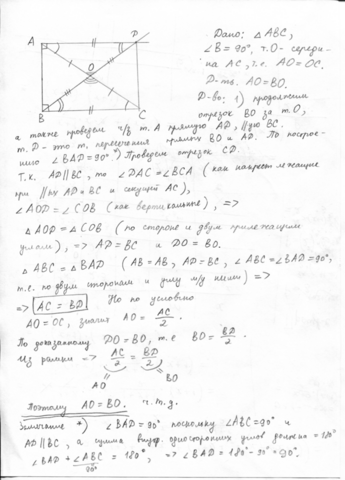 A
D
O
B
C
Дано: △ABC,
∠B = 90°, т.О - середи-
на AC, т.е. AO=OC.
Д-ть: AO=BO.
Д-во: 1) продолжим
отрезок BO за т.О,
а также проведем ч/з т. A прямую AD, ||ую BC.
т. D - это т. пересечения прямых BO и AD. По построе-
нию ∠BAD=90° *) Проведем отрезок CD.
Т.к. AD||BC, то ∠DAC=∠BCA (как накрест лежащие
при ||ых AD и BC и секущей AC),
∠AOD=∠COB (как вертикальные), =>
△AOD=△COB (по стороне и двум прилежащим
углам), => AD=BC и DO=BO.
△ABC=△BAD (AB=AB, AD=BC, ∠ABC=∠BAD=90°,
т.е. по двум сторонам и углу м/у ними) =>
=> AC=BD Но по условию
AO=OC, значит AO = AC/2.
По доказанному DO=BO, т.е BO = BD/2.
Из равенств => AC/2 = BD/2
AO BO
Поэтому AO=BO. ч.т.д.
Замечание *) ∠BAD=90° поскольку ∠ABC=90° и
AD||BC, а сумма внутр. односторонних углов должна =180°
∠BAD + ∠ABC = 180°, => ∠BAD=180°-90°=90°.
90°